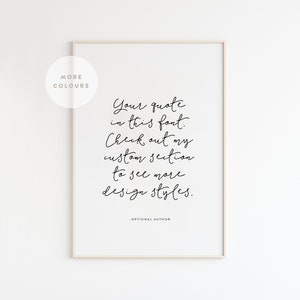 MORE
COLOURS
Your quote
in this font.
Check out my
custom section
to see more
design styles.
-OPTIONAL AUTHOR